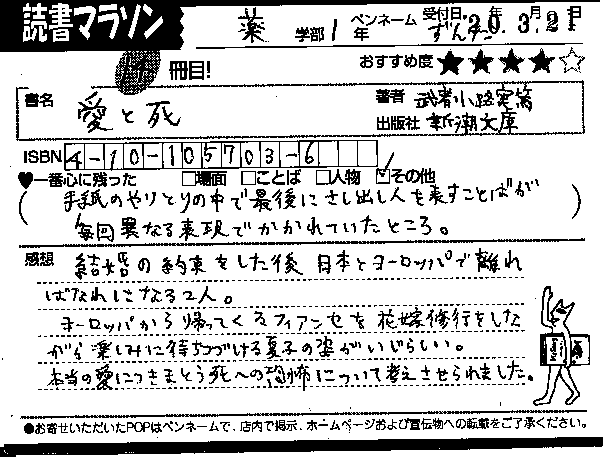 読書マラソン
薬 学部 1 年 ペンネーム ずんだー
受付日. 20年 3.月 21日
冊目!
おすすめ度 ★★★★☆
書名 愛と死
著者 武者小路実篤
出版社 新潮文庫
ISBN 4-10-105703-6
♥一番心に残った □場面 □ことば □人物 ☑その他
(手紙のやりとりの中で最後にさし出し人を表すことばが
毎回異なる表現でかかれていたところ。)
感想 結婚の約束をした後 日本とヨーロッパで離れ
ばなれになる2人。
ヨーロッパから帰ってくるフィアンセを花嫁修行をした
がら楽しみに待ちつづける夏子の姿がいじらしい。
本当の愛につきまとう死への恐怖について考えさせられました。
●お寄せいただいたPOPはペンネームで、店内で掲示、ホームページおよび宣伝物への転載をご了承ください。